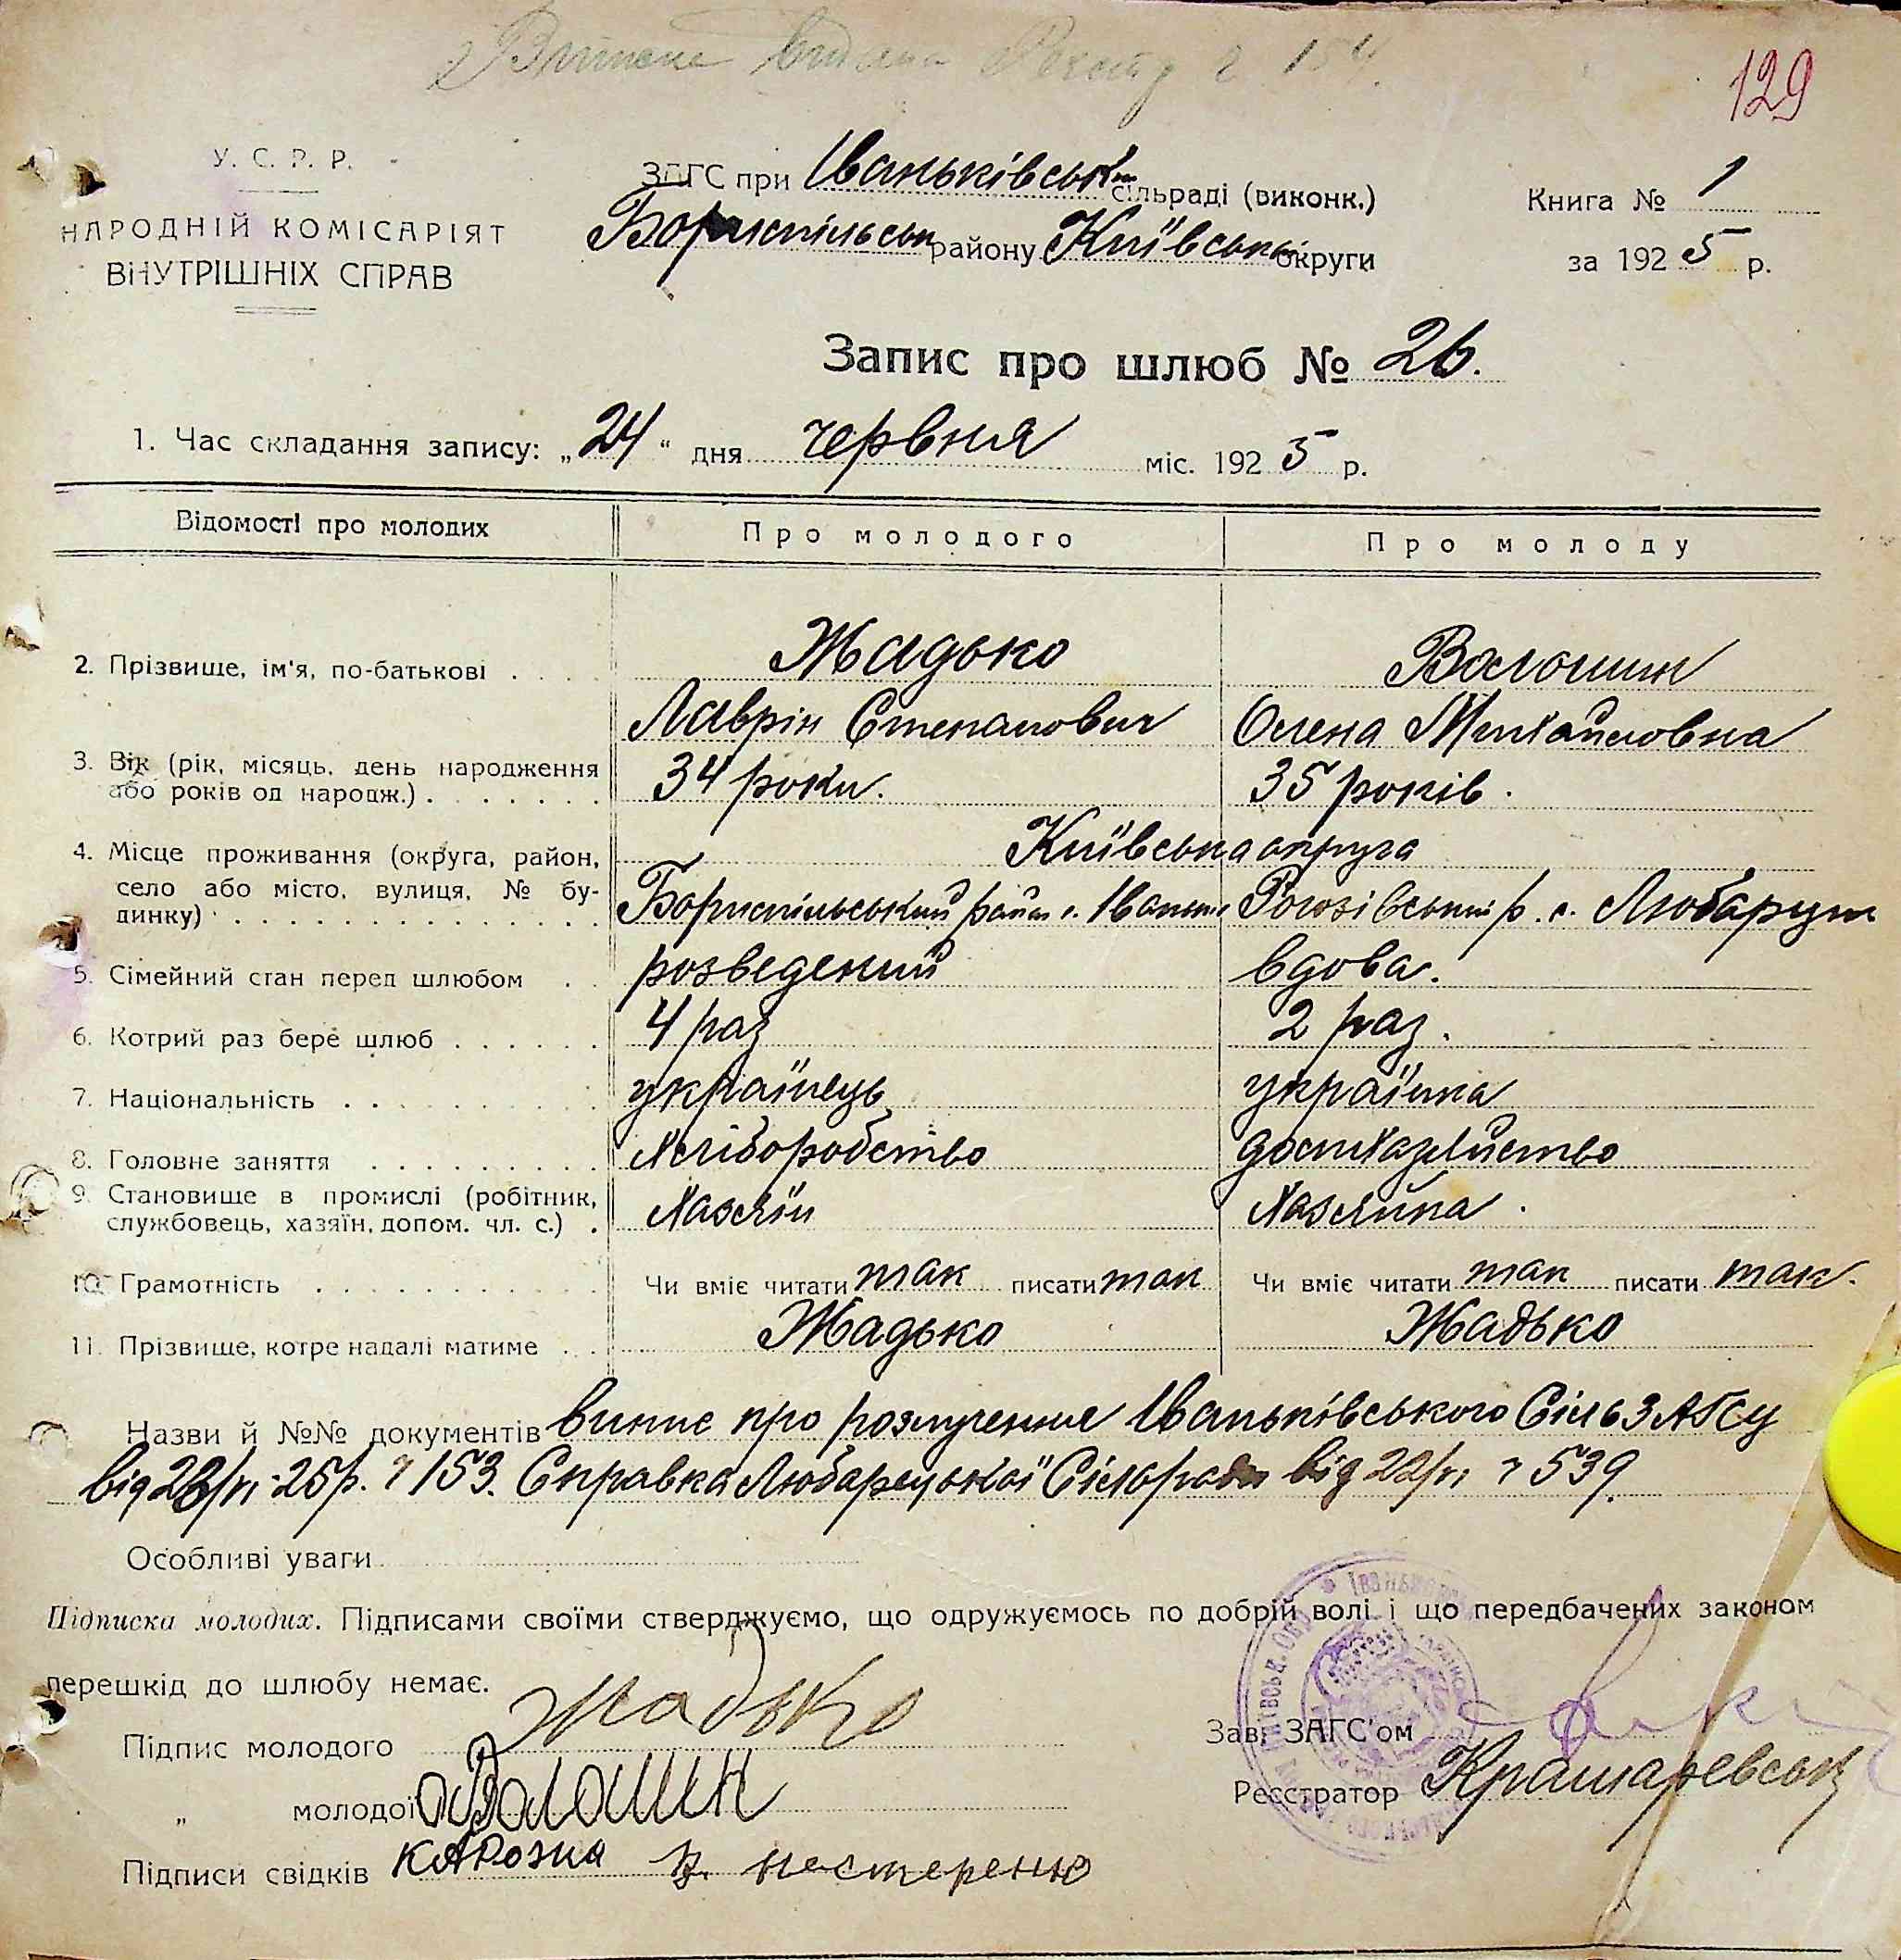 Виписка видана
129
У. С. Р. Р.
НАРОДНІЙ КОМІСАРІЯТ
ВНУТРІШНІХ СПРАВ
ЗАГС при Іваньківській сільраді (виконк.)
Бориспільськ району Київської округи
Книга № 1
за 1925 р.
Запис про шлюб № 26.
1. Час складання запису: „24“ дня червня міс. 1925 р.
Відомості про молодих Про молодого Про молоду
2. Прізвище, ім'я, по-батькові . . . . Жадько Волошин
Лаврін Степанович Олена Михайловна
3. Вік (рік, місяць, день народження 34 роки. 35 років.
або років од народж.) . . . . . . .
4. Місце проживання (округа, район, Київська округа
село або місто, вулиця, № бу- Бориспільський район с. Іваньк Рогозівський р. с. Любарці
динку) . . . . . . . . . . . . . .
5. Сімейний стан перед шлюбом . . розведений вдова.
6. Котрий раз бере шлюб . . . . . . 4 раз 2 раз.
7. Національність . . . . . . . . . . українець українка
8. Головне заняття . . . . . . . . . хліборобство домхазяйство
9. Становище в промислі (робітник, хазяїн хазяйка.
службовець, хазяїн, допом. чл. с.) .
10. Грамотність . . . . . . . . . . . Чи вміє читати так писати так Чи вміє читати так писати так.
11. Прізвище, котре надалі матиме . . . Жадько Жадько
Назви й №№ документів випис про розлучення Іваньківського СільЗАГСу
від 23/VI-25р. № 153. Справка Любарецької Сільради від 22/VI № 539.
Особливі уваги
Підписка молодих. Підписами своїми стверджуємо, що одружуємось по добрій волі і що передбачених законом
перешкід до шлюбу немає.
Підпис молодого Жадько
„ молодої О Волошин
Зав. ЗАГС'ом
Реєстратор Крамаревськ
Підписи свідків Карозна Нестеренко